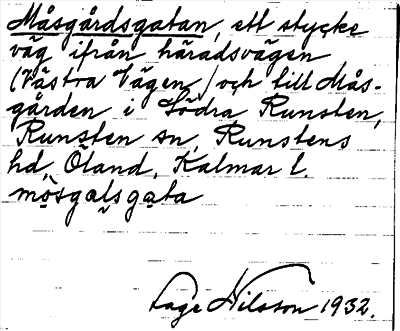 Måsgårdsgatan, ett stycke
väg ifrån häradsvägen
(Västra Vägen) och till Mås-
gården i Södra Runsten,
Runsten sn, Runstens
hd, Öland, Kalmar l.
mǫ̈sgal̥sgata
Tage Nilsson 1932.